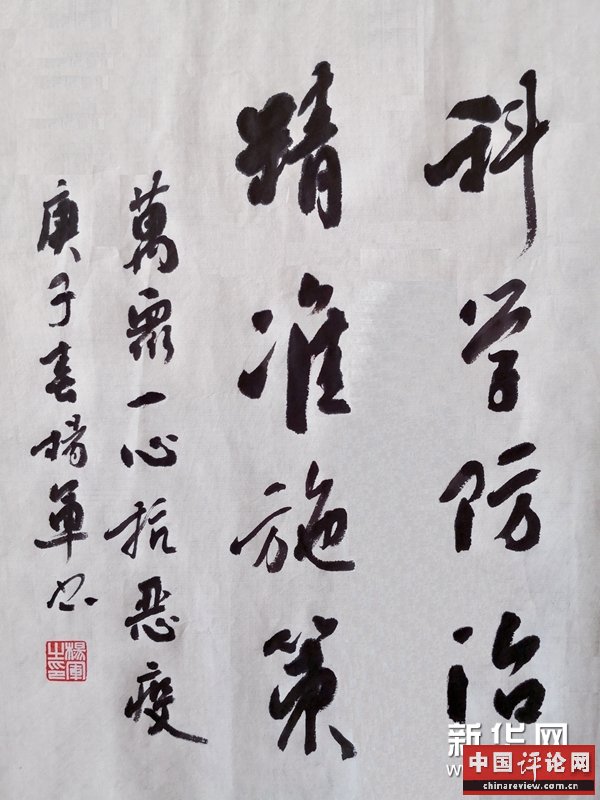 科学防治
精准施策
萬眾一心抗恶疫
庚子春楊軍书
楊軍之印
新华网
中国评论网
chinareview.com.cn